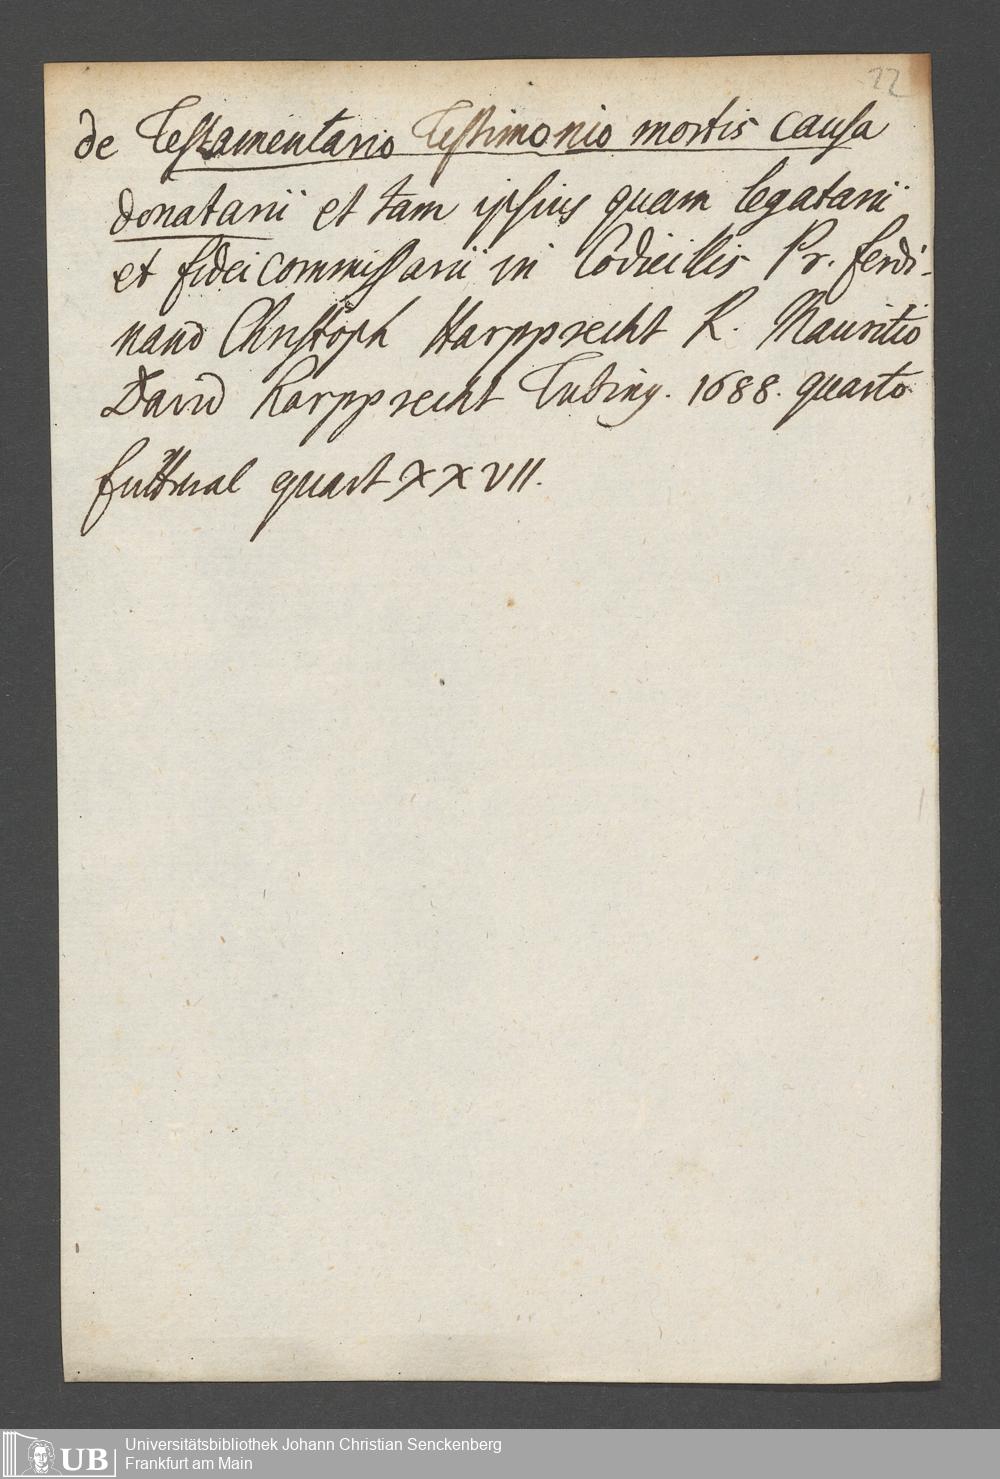 22
de Testamentario Testimonio mortis causa
donatarii et tam ipsius quam legatarii
et fidei commissarii in Codicillis Pr. Ferdi-
nand Christoph Harpprecht R. Mauritio
David Harpprecht Tubing. 1688. quarto
quart XXVII.
UB Universitätsbibliothek Johann Christian Senckenberg
Frankfurt am Main